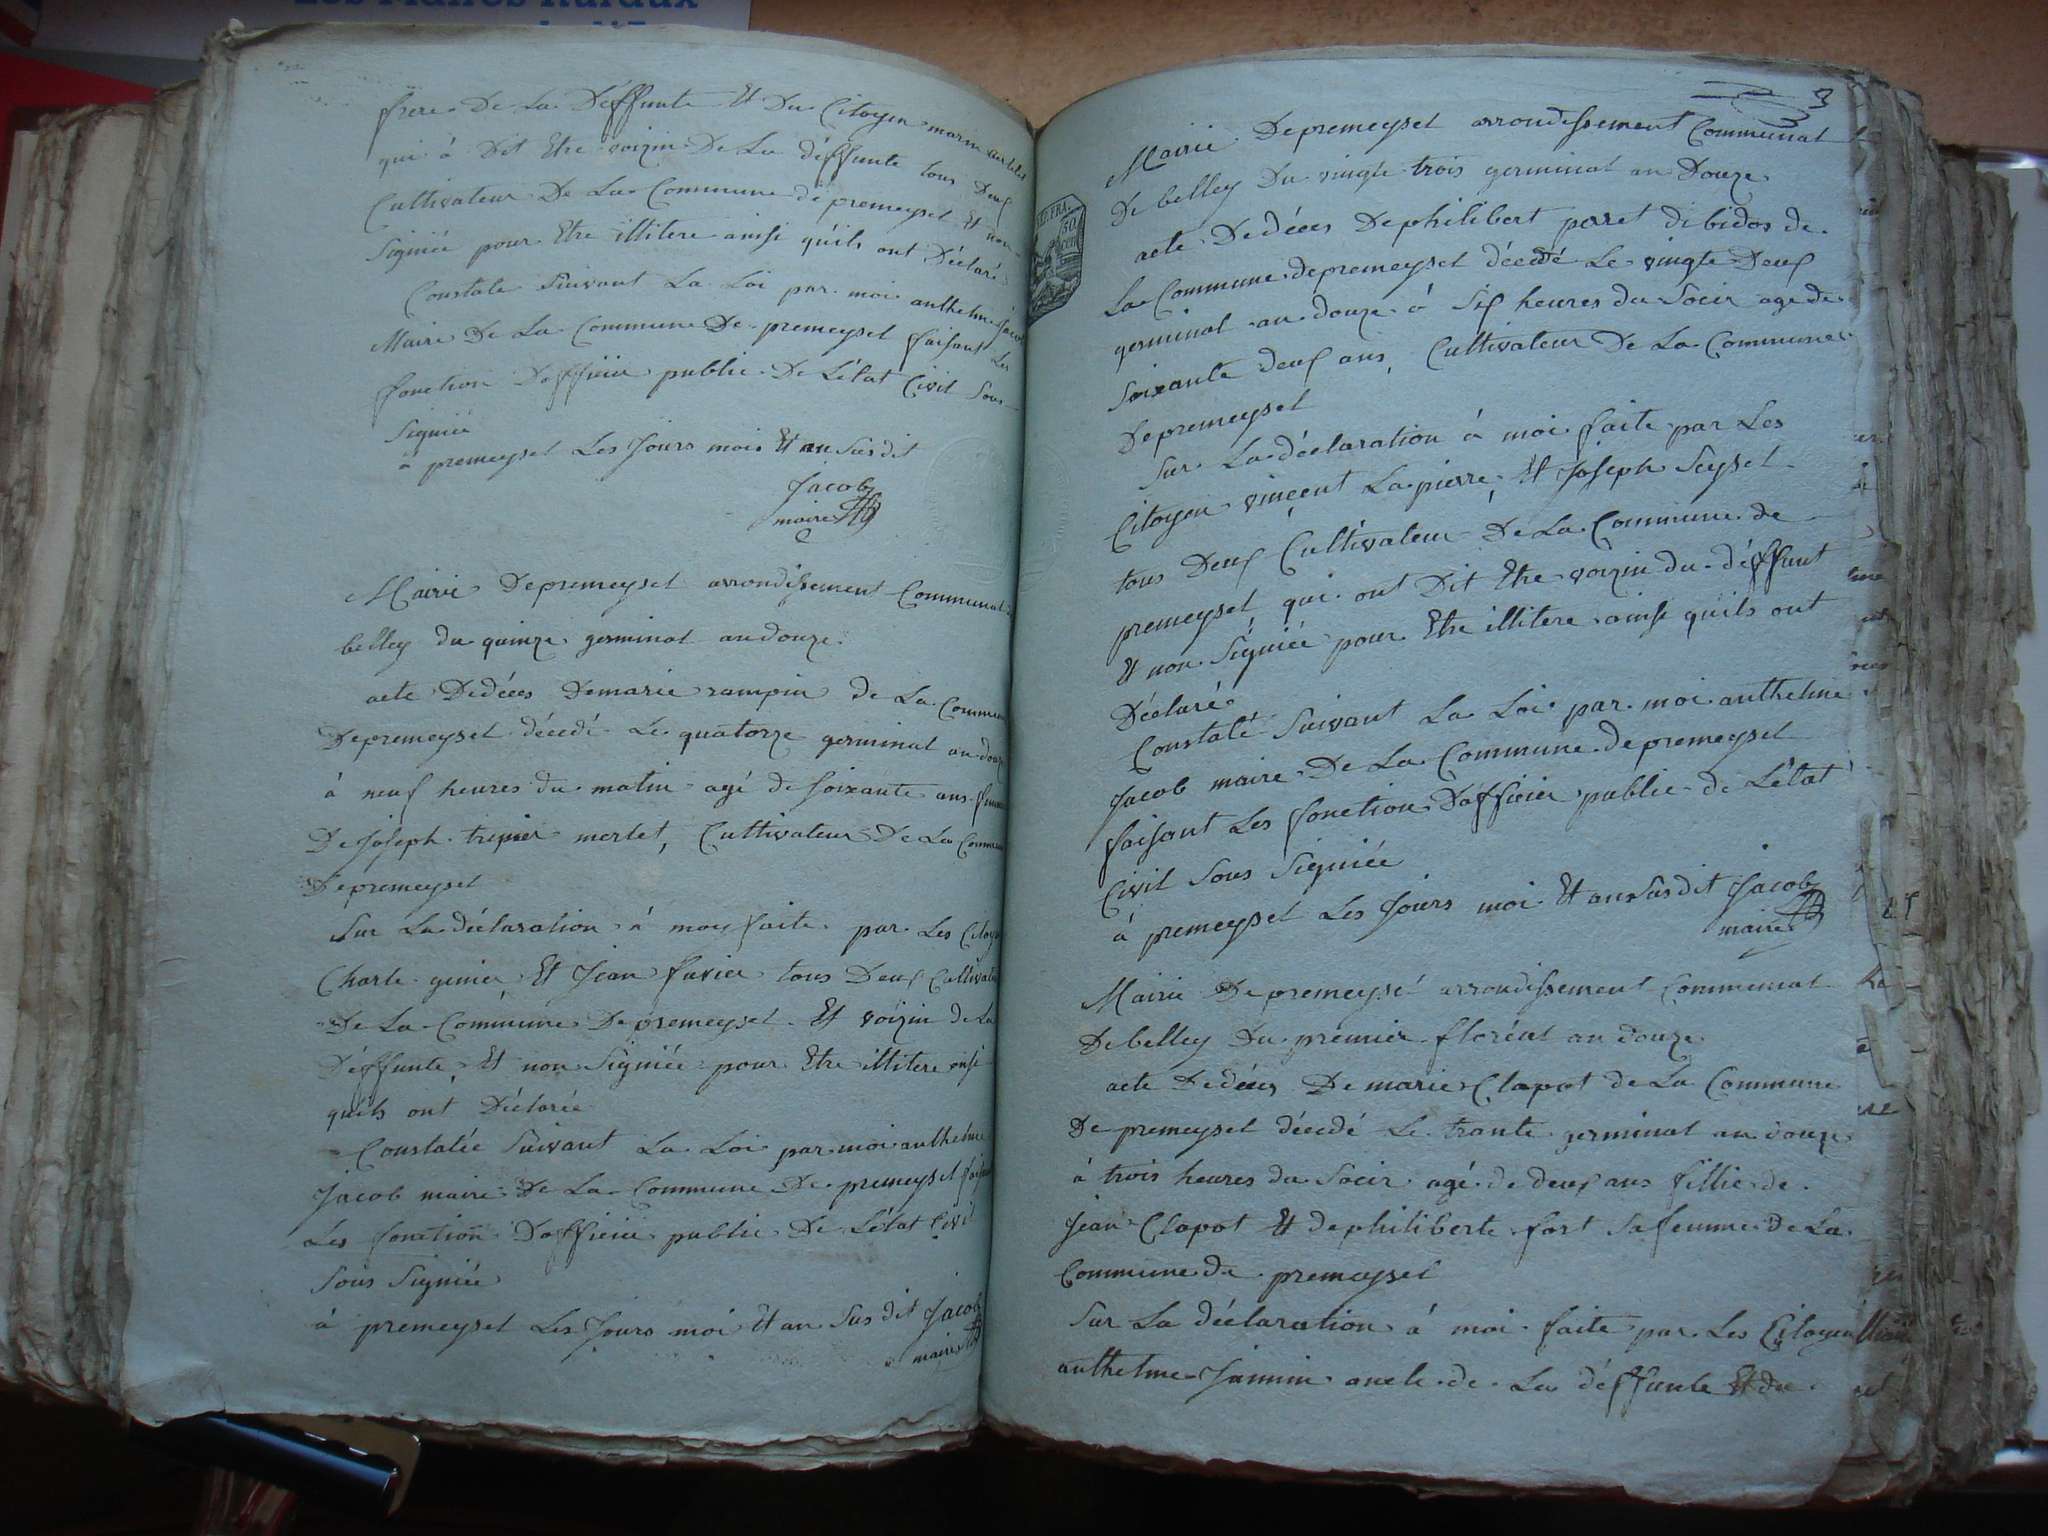 Les Maires Ruraux
frere De La Deffunte Et Du Citoyen marin
qui à Dit Etre voizin De La déffunte tous Deuf
Cultivateur De La Commune de premeysel Et non
Signiée pour Etre illitere ainsi qu'ils ont Déclaré
Constate Suivant La Loi par moi anthelme Jacob
Maire De La Commune De premeysel faisant Les
fonction D'officier public De L'état Civil Sous
Signiée
à premeysel Les Jours mois Et an Susdit
Jacob
maire
Mairie Depremeysel arrondissement Communal de
belley du quinze germinal an douze
acte Dedéces Demarie rampin de La Commune
Depremeysel décedé Le quatorze germinal an douze
à neuf heures du matin agé de soixante ans femme
De Joseph tripier merlet, Cultivateur De La Commune
Depremeysel
Sur La déclaration à moy faite par Les Citoyen
Charle genier Et Jean favier tous Deuf Cultivateur
De La Commune De premeysel Et voizin de La
Déffunte Et non Signiée pour Etre illitere ainsi
qu'ils ont Déclarée
Constatée Suivant La Loi par moi anthelme
Jacob maire De La Commune De premeysel faisant
Les fonction D'officier public De L'état Civil
Sous Signiée
à premeysel Les Jours moi Et an Susdit Jacob
maire
3
REP. FRA.
50
CEN
Mairie Depremeysel arrondissement Communal
De belley Du vingte trois germinal an Douze
acte Dedéces Dephilibert perret di bidos de
La Commune depremeysel décedé Le vingte Deuf
germinal an douze à Sif heures du Soeir age de
Soixante deuf ans, Cultivateur De La Commune
Depremeysel
Sur La déclaration à moi faite par Les
Citoyen vincent Lapierre, Et Joseph Seysel
tous Deuf Cultivateur De La Commune de
premeysel, qui ont Dit Etre voizin du déffunt
Et non Signiée pour Etre illitere ainsi qu'ils ont
Déclaré
Constaté Suivant La Loi par moi anthelme
Jacob maire De La Commune depremeysel
faisant Les fonction D'officier public de L'état
Civil Sous Signiée
à premeysel Les Jours moi Et an Susdit Jacob
maire
Mairie Depremeysé arrondissement Communal
De belley Du premier floréal an douze
acte Dedéces De marie Clapot de La Commune
De premeysel décedé Le trante germinal an douze
à trois heures du Soeir agé de deuf ans fillie de
Jean Clapot Et dephiliberte fort Sa femme de La
Commune de premeysel
Sur La déclaration à moi faite par Les Citoyen
anthelme Jannin oncle de La déffunte Et du